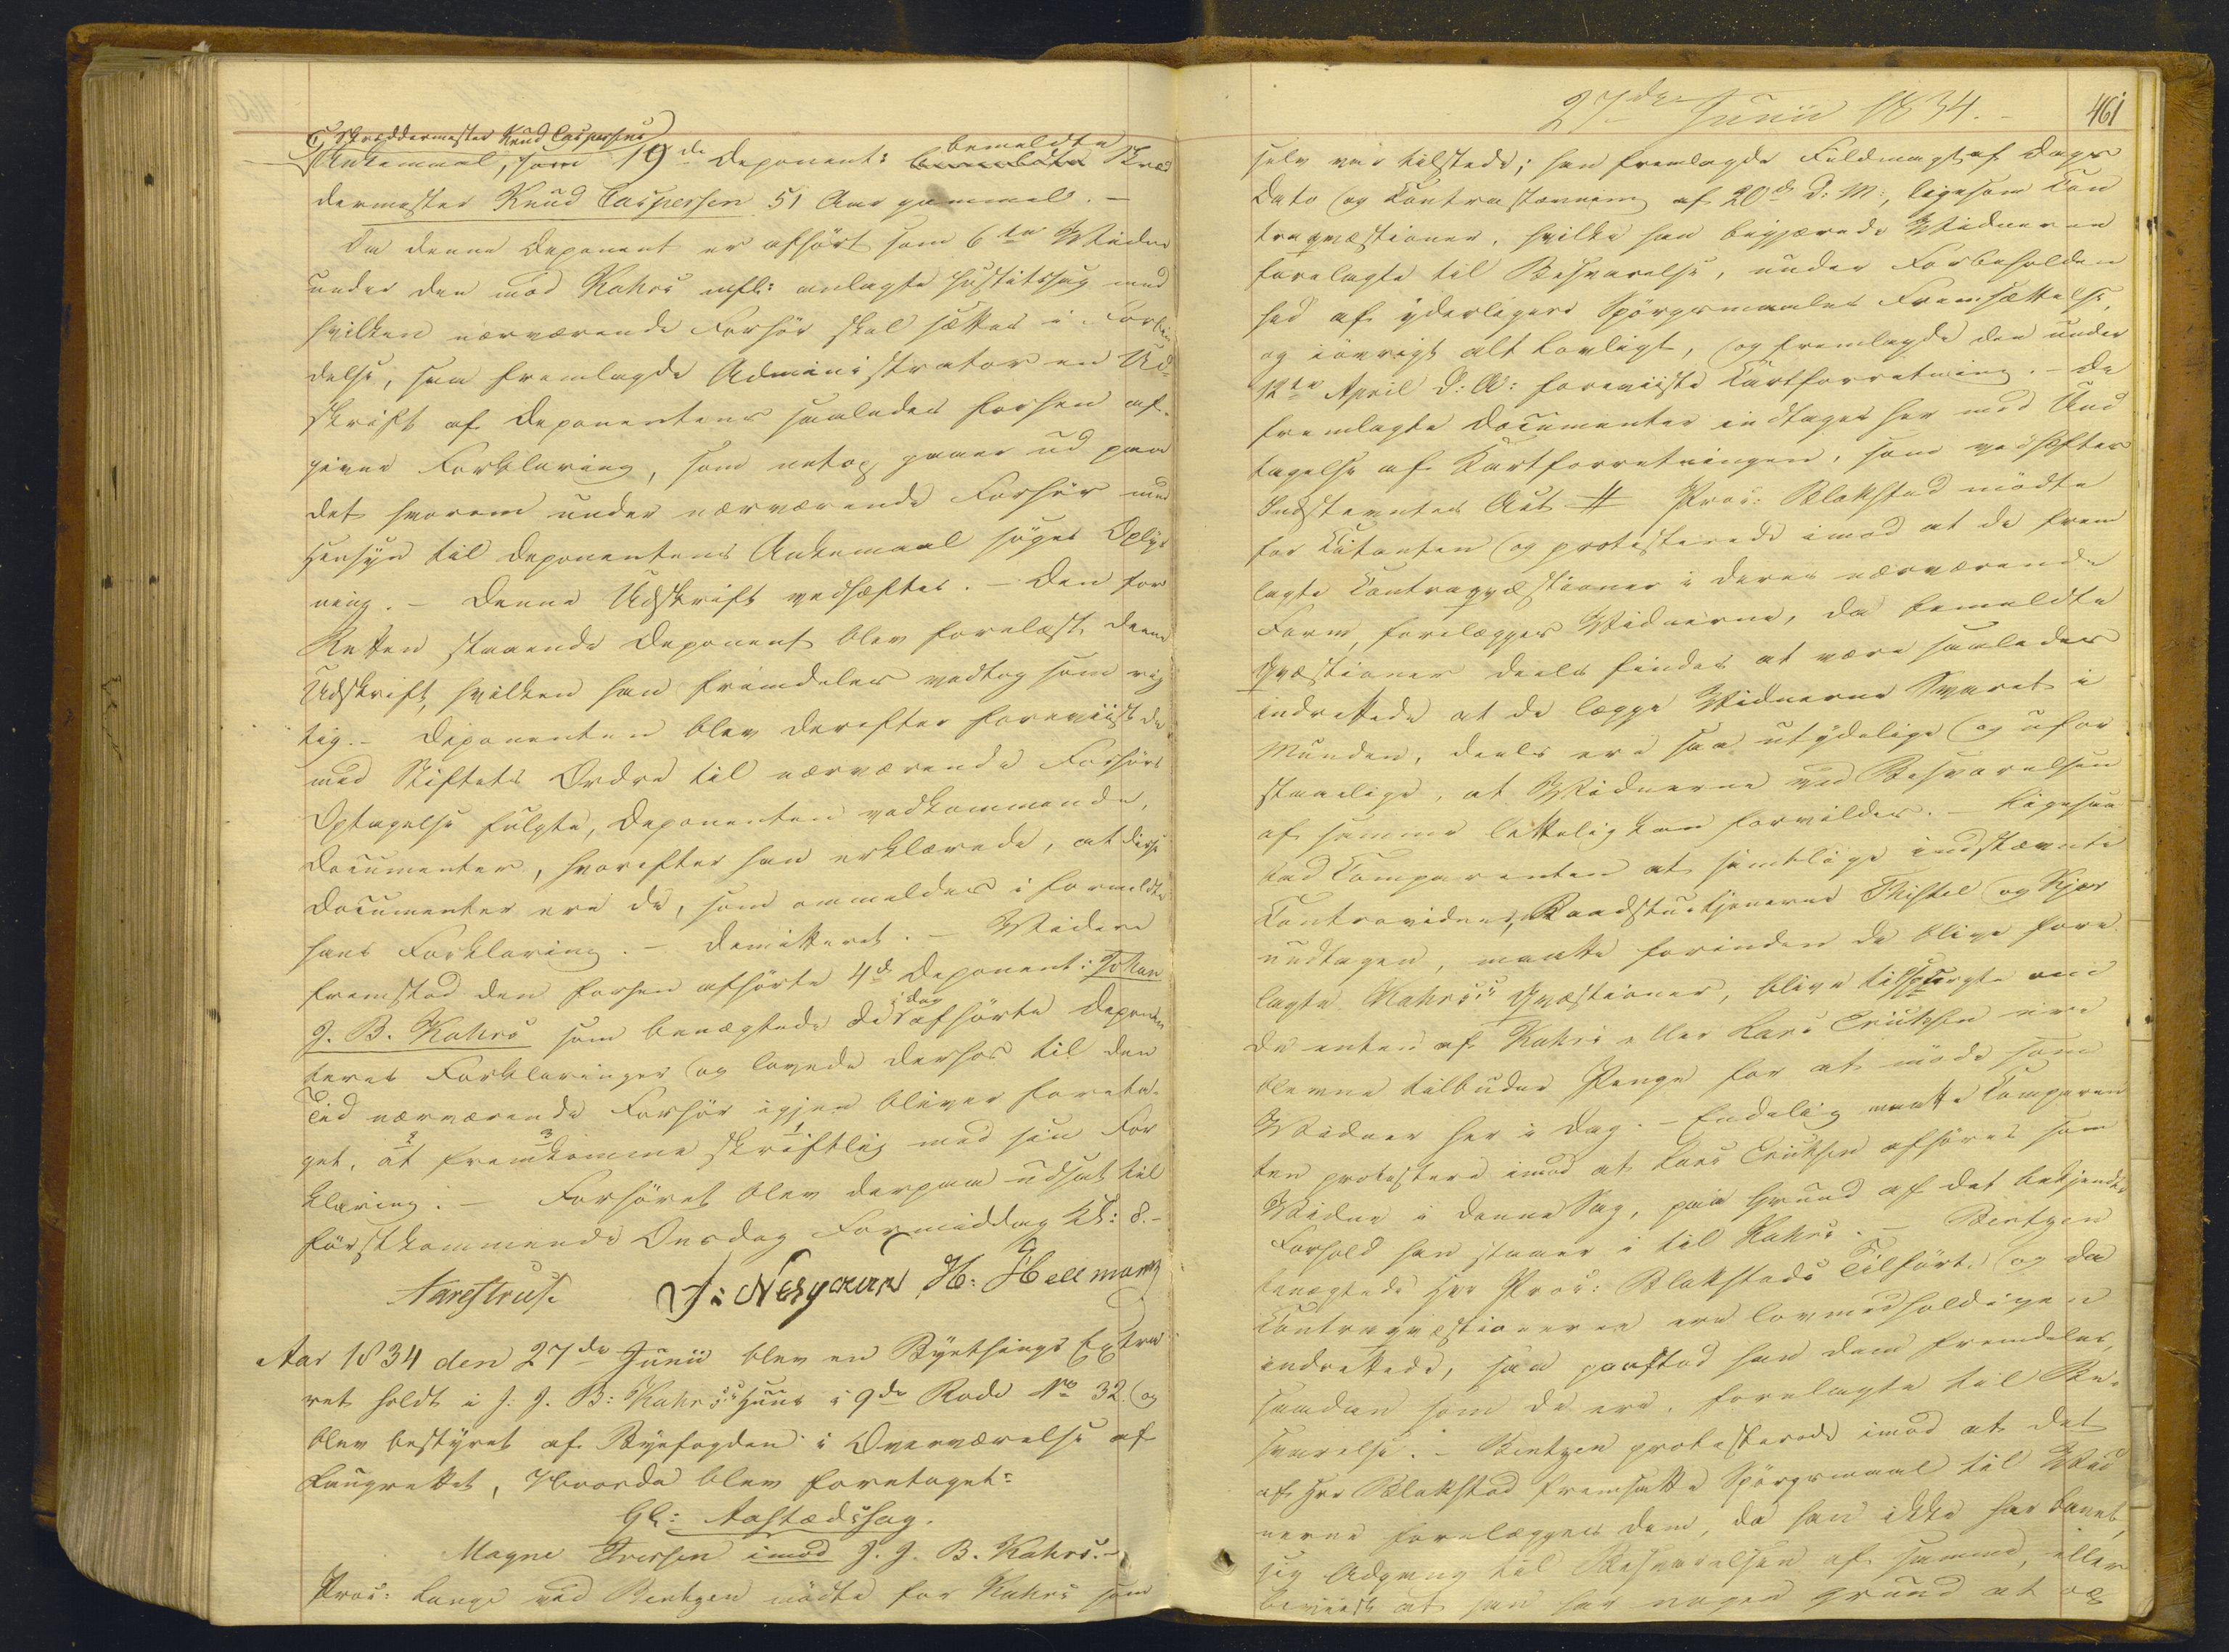 Skræddermester Knud Caspersens
Ankemaal, som 19de Deponent: bemeldte Skræd
dermester Knud Caspersen 51 Aar gammel. –
Da denne Deponent er afhørt som 6te Widne
under den mod Kahrs mfl: anlagte Justitssag med
hvilken nærværende Forhør skal sættes i Forbin
delse, saa fremlagde Administrator en Ud-
skrift af Deponentens saaledes forhen af-
givne Forklaring, som netop gaaer ud paa
det hvorom under nærværende Forhør med
Hensyn til Deponentens Ankemaal søges Oplys
ning. – Denne Udskrift vedhæftes. – Den for
Retten staaende Deponent blev forelæst denne
Udskrift, hvilken han fremdeles vedtog som rig
tig. – Deponenten blev derefter foreviist de
med Stiftets Ordre til nærværende Forhørs
Optagelse fulgte, Deponenten vedkommende,
Documenter, hvorefter han erklærede, at disse
Documenter ere de, som ommeldes i formeldte
hans Forklaring. – Demitteret. – Widere
fremstod den forhen afhørte 4de Deponent: Johan
J. B. Kahrs som benægtede de i dag afhørte Deponen
teres Forklaringer og lovede derhos til den
Tid nærværende Forhør igjen bliver foreta-
get, at fremkomme skriftlig med sin For
klaring. – Forhøret blev derpaa udsat til
førstkommende Onsdag Formiddag Kl: 8. –
Aarestrup J: Nesgaar H: Hellmann
Aar 1834 den 27de Junii blev en Byethings Extra
ret holdt i J. J. B: Kahrs's Huus i 9de Rode No 32 og
blev bestyret af Byefogden i Overværelse af
Laugrettet, Hvorda blev foretaget:
Gl: Aastædssag.
Magne Iversen imod J. J. B. Kahrs. –
Proc: Lange ved Bentzen mødte for Kahrs som
27de Junii 1834. –
461
selv var tilstede; han fremlagde Fuldmagt af Dags
Dato og Contrastævning af 20de d: M:, ligesom Con
traqvæstioner, hvilke han begjærede Widnerne
forelagte til Besvarelse, under Forbeholden
hed af yderligere Spørgsmaales Fremsættelse,
og iøvrigt alt Lovligt, og fremlagde den under
12te April d: A: foreviiste Kartforretning. – De
fremlagte Documenter indtages her med Und
tagelse af Kartforretningen, som vedhæftes
Indstevntes Act # Proc: Blakstad mødte
for Citanten og protesterede imod at de frem
lagte Contraqvæstioner i deres nærværende
Form, forelægges Widnerne, da bemeldte
Qvæstioner deels findes at være saaledes
indrettede at de lægge Widnerne Svaret i
Munden, deels ere saa utydelige og ufor
staaelige, at Widnerne ved Besvarelsen
af samme lettelig kan forvildes. – Ligesaa
bad Comparenten at samtlige indstævnte
Contravidner, Raadstuetjenerne Thistel og Kjær
undtagen, maatte forinden de blive fore
lagte Kahrs's Qvæstioner, blive tilspurgte om
de enten af Kahrs eller Lars Erichsen ere
blevne tilbuden Penge for at møde som
Widner her i Dag. – Endelig maatte Comparen
ten protestere imod at Lars Erichsen afhøres som
Widne i denne Sag, paa Grund af det bekjendte
Forhold han staaer i til Kahrs. – Bentzen
benægtede Hr Proc: Blakstads Tilført og da
Contraqvæstionerne ere lovmedholdigen
indrettede, saa paastod han dem fremdeles,
saadan som de ere, forelagte til Be-
svarelse. – Bentzen protesterede imod at det
af Hr Blakstad fremsatte Spørgsmaal til Wid
nerne forelægges dem, da han ikke har banet
sig Adgang til Besvarelsen af samme, eller
beviist at han har nogen Grund at op